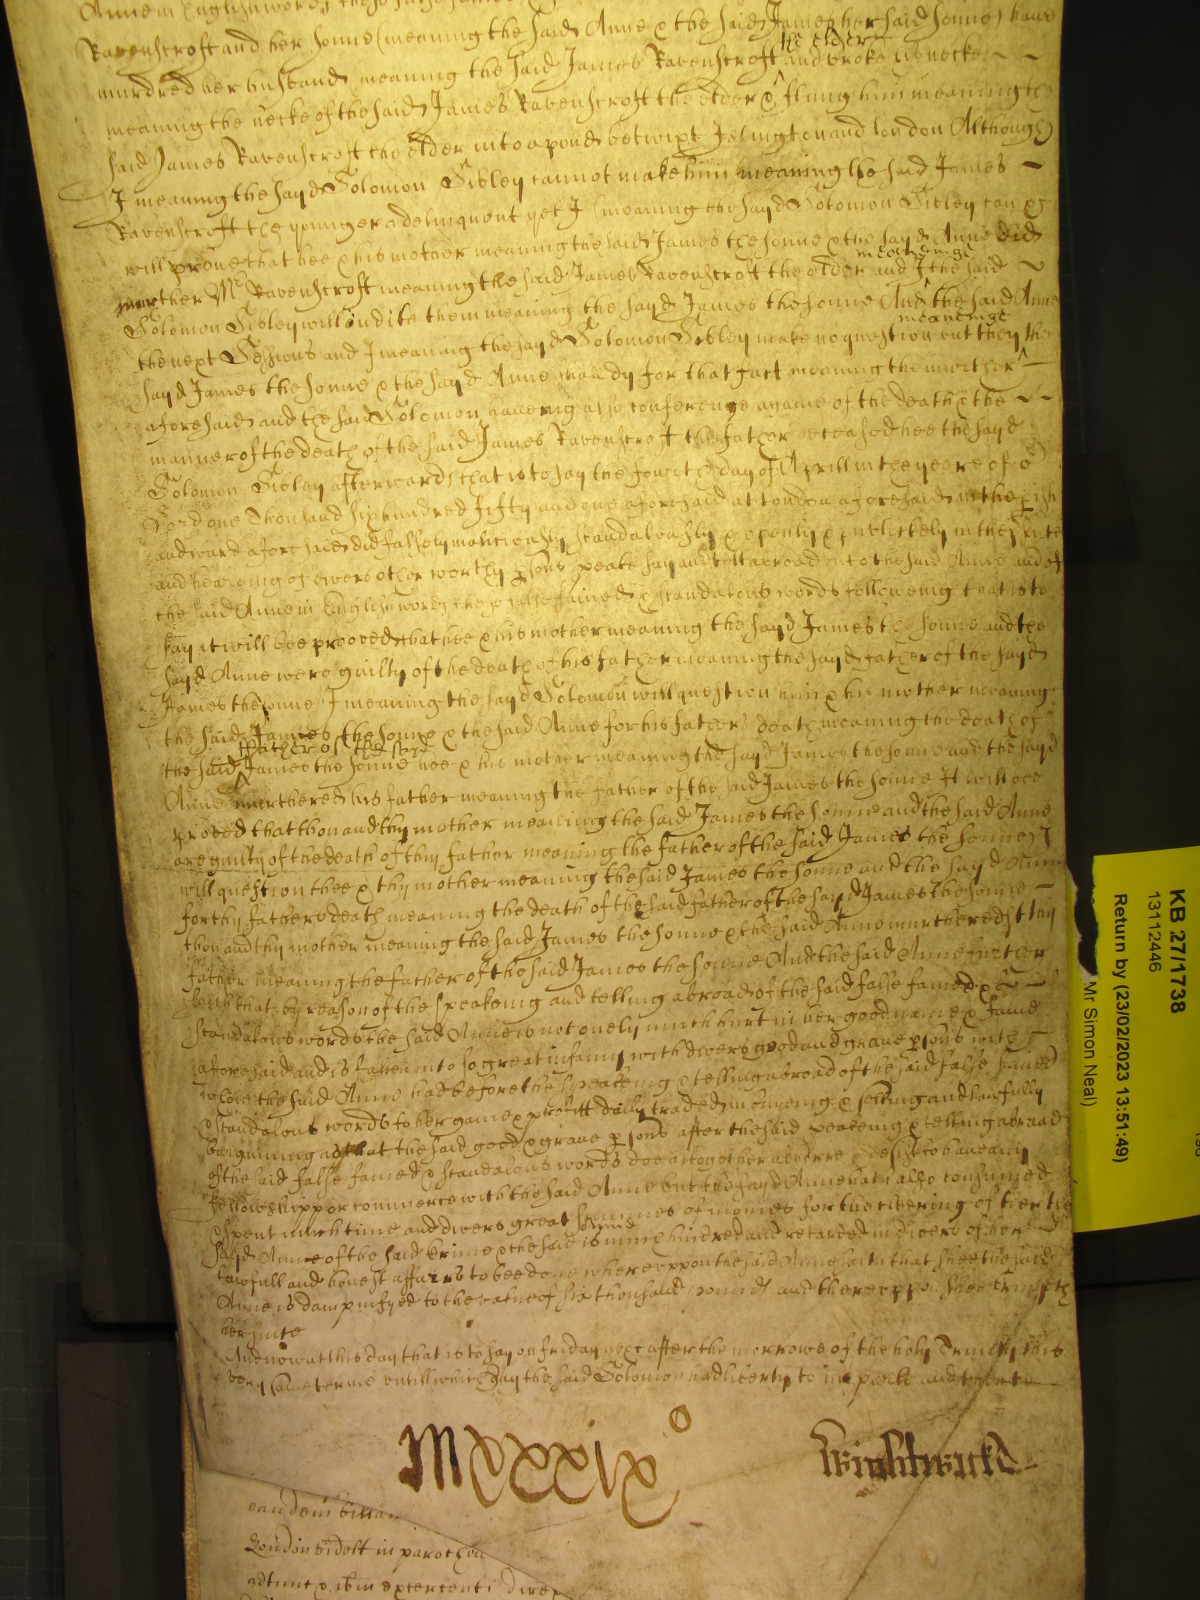 Anne in English words these false fained
Ravenscroft and her sonne (meaning the said Anne & the said James her said sonne) have
murdred her husband meaning the said James Ravenscroft the elder and broke his necke
meaning the necke of the said James Ravenscroft the elder & flung him meaning the
said James Ravenscroft the elder into a pond betwixt Islington and london Although
I meaning the sayd Solomon Sibley cannot make him meaning the said James
Ravenscroft the younger a delinquent yet I (meaning the sayd Solomon Sibley can &
will prove that hee & his mother meaning the said James the sonne & the sayd Anne did
murther Mr Ravenscroft meaning the said James Ravenscroft the elder and I meaneinge the said
Solomon Sibley will indite them meaning the sayd James the sonne And the said Anne
the next Sessions and I meaning the sayd Solomon Sibley make no question but they meaneinge the
sayd James the sonne & the sayd Anne shall dy for that fact meaning the murther
aforesaid and the said Solomon haveing also conference againe of the death & the
manner of the death of the said James Ravenscroft the father deceased hee the sayd
Solomon Sibley afterwards that is to say the fourth day of Aprill in the yeere of or
Lord one Thousand six hundred fifty and one aforesaid at London aforesaid in the pish
and ward aforesaid did falsely maliciously scandalously & openly & publickely in the psence
and heareing of divers other worthy psons speake say and tell abroad unto the said Anne and of
the said Anne in English words these false fained & scandalous words followeing that is to
say it will bee prooved that hee & his mother meaning the sayd James the sonne and the
sayd Anne were guilty of the death of his father meaning the sayd father of the sayd
James the sonne I meaning the sayd Solomon will question him & his mother meaning
the said James the sonne & the said Anne for his fathers death meaning the death of
the said father of the said James the sonne hee & his mother meaning the sayd James the sonne and the sayd
Anne murthered his father meaning the father of the said James the sonne It will bee
proved that thou and thy mother meaning the said James the sonne and the said Anne
are guilty of the death of thy father meaning the father of the said James the sonne I
will question thee & thy mother meaning the said James the sonne and the sayd Anne
for thy fathers death meaning the death of the said father of the sayd James the sonne
thou and thy mother meaning the said James the sonne & the said Anne murthered thy
father meaning the father of the said James the sonne And the said Anne further
saith that by reason of the speakeing and telling abroad of the said false fained &
scandalous words the said Anne is not onely much hurt in her good name & fame
aforesaid and is fallen into so great infamy with divers good and grave psons with
whom the said Anne had before the speakeing & telling abroad of the said false fained
& scandalous words to her gaine & profitt daily traded in buyeing & selling and lawfully
bargaining as that the said good & grave psons after the said speakeing & telling abroad
of the said false fained & scandalous words doe altogether abhorre & desist to have any
fellowshipp or commerce with the said Anne but the sayd Anne hath also consumed
& spent much time and divers great summes of monies for the cleering of her the
sayd Anne of the said Crime & the said is much hindred and retarded in divers of her
lawfull and honest affaires to bee done whereuppon the said Anne saith that shee the said
Anne is dampnifyed to the value of six thousand pounds and thereuppon shee bringeth
her suite
And now at this day that is to say on friday next after the morrowe of the holy Trinity this
very same terme untill which day the said Solomon had liberty to imparle and
MXXXIXo
Wightwick
eandem billam
London videlt in parochia
adtunc & ibm existenti
KB 27/1738
13112446
Return by (23/02/2023 13:51:49)
Mr Simon Neal)